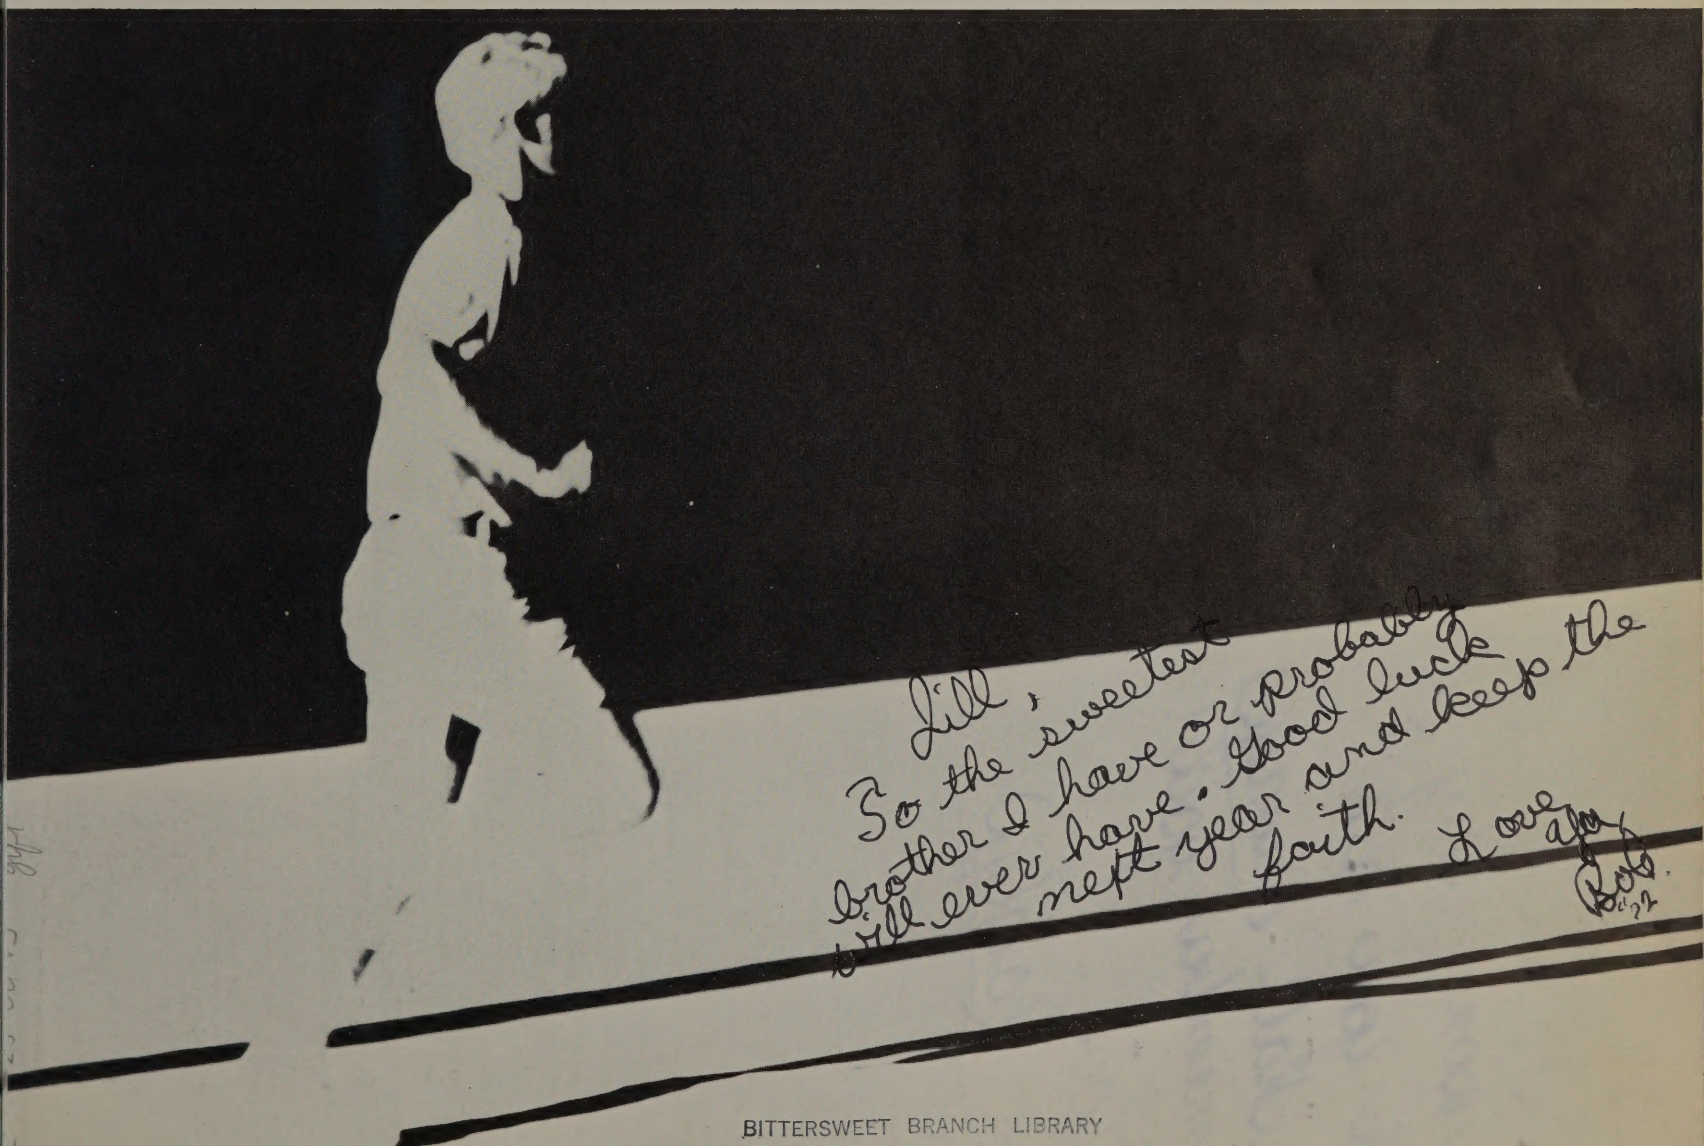 Jill,
To the sweetest
brother I have or probably
will ever have. Good luck
next year and keep the
faith.
Love
Bob
"72
BITTERSWEET BRANCH LIBRARY